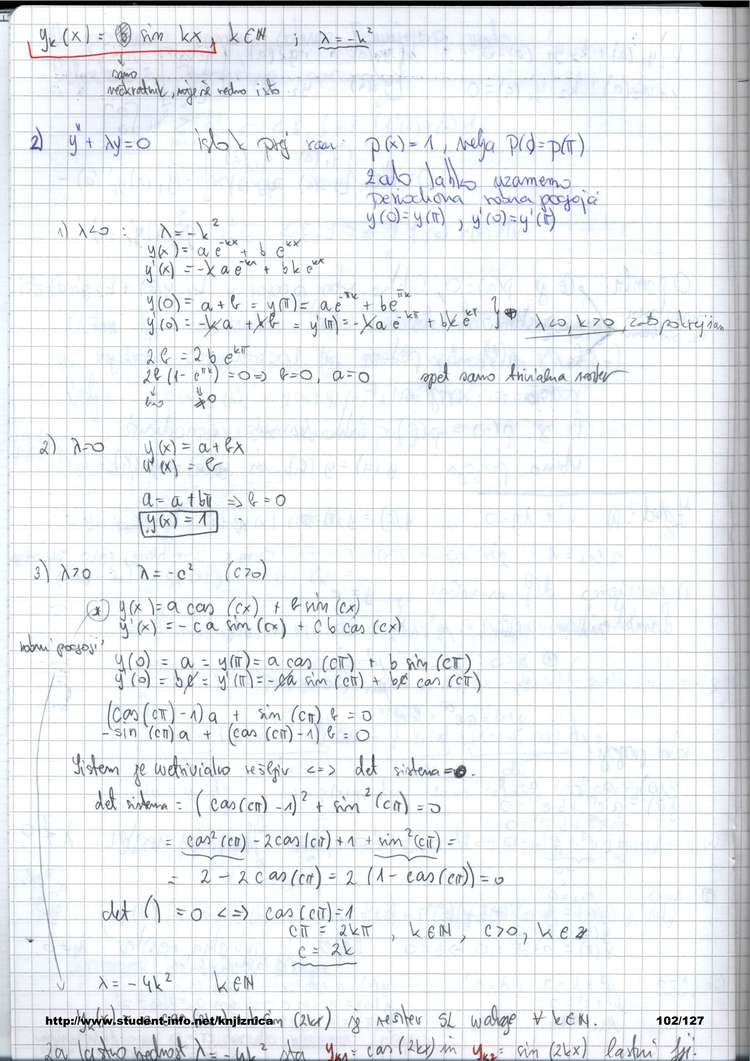 y_k(x) = sin kx, k∈ℕ ; λ = -k²
samo
večkratnik,
2) y'' + λy = 0 p(x) = 1, velja p(0) = p(π)
zato lahko vzamemo
periodična robna pogoja
y(0) = y(π), y'(0) = y'(π)
1) λ<0 : λ = -k²
y(x) = a e^{-kx} + b e^{kx}
y'(x) = -k a e^{-kx} + b k e^{kx}
y(0) = a + b = y(π) = a e^{-πk} + b e^{πk}
y'(0) = -k a + k b = y'(π) = -k a e^{-kπ} + b k e^{kπ} } λ<0, k>0, zato
2b = 2b e^{kπ}
2b (1 - e^{πk}) = 0 => b=0, a=0 spet samo trivialna rešitev
≠0
2) λ=0 y(x) = a + bx
y'(x) = b
a = a + bπ => b = 0
y(x) = 1
3) λ>0 λ = -c² (c>0)
* y(x) = a cos (cx) + b sin (cx)
y'(x) = -c a sin (cx) + c b cos (cx)
robni pogoji
y(0) = a = y(π) = a cos (cπ) + b sin (cπ)
y'(0) = bc = y'(π) = -ca sin (cπ) + bc cos (cπ)
(cos(cπ) - 1) a + sin (cπ) b = 0
-sin (cπ) a + (cos (cπ) - 1) b = 0
Sistem je netrivialno rešljiv <=> det sistema = 0.
det sistema = (cos(cπ) - 1)² + sin²(cπ) = 0
= cos²(cπ) - 2cos(cπ) + 1 + sin²(cπ) =
= 2 - 2cos(cπ) = 2 (1 - cos(cπ)) = 0
det () = 0 <=> cos(cπ) = 1
cπ = 2kπ, k∈ℕ, c>0, k∈ℤ
c = 2k
λ = -4k² k∈ℕ
(2kx) je rešitev SL naloge ∀ k∈ℕ.
http://www.student-info.net/knjiznica 102/127
za lastno vrednost λ = -4k² sta y_{k1} = cos (2kx) in y_{k2} = sin (2kx) lastni fji.